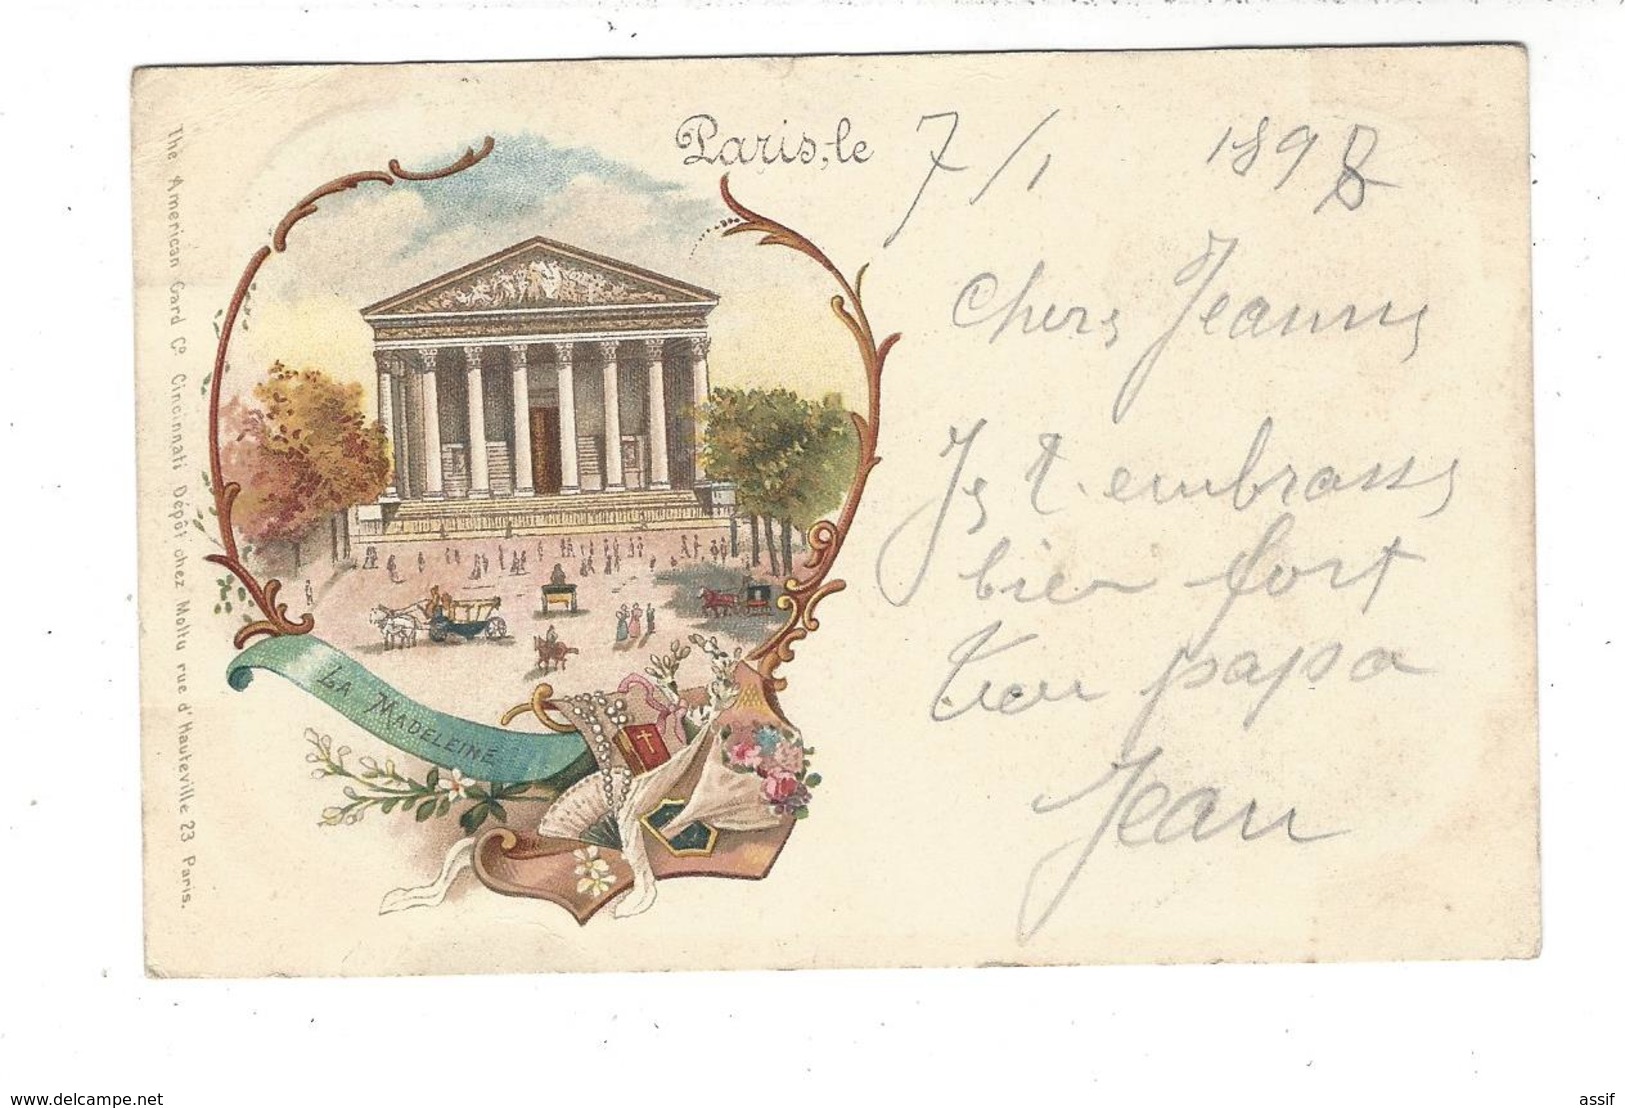 The American Card Co. Cincinnati Dépôt chez Moltu rue d'Hauteville 23 Paris.
Paris, le 7/1 1898
Chere Jeanne
Je t'embrasse
bien fort
ton papa
Jean
LA MADELEINE
www.delcampe.net
assif